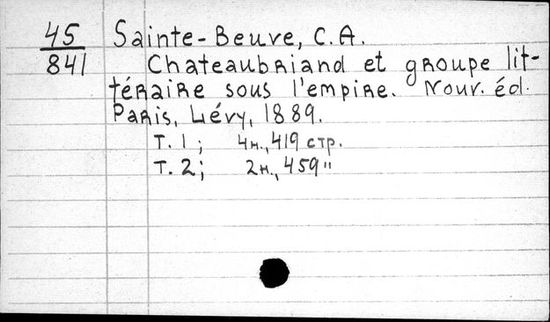 45 Sainte-Beuve, C.A.
841 Chateaubriand et groupe lit-
téraire sous l'empire. Nouv. éd.
Paris, Lévy, 1889.
T. 1; 4н., 419 стр.
T. 2; 2н., 459 "